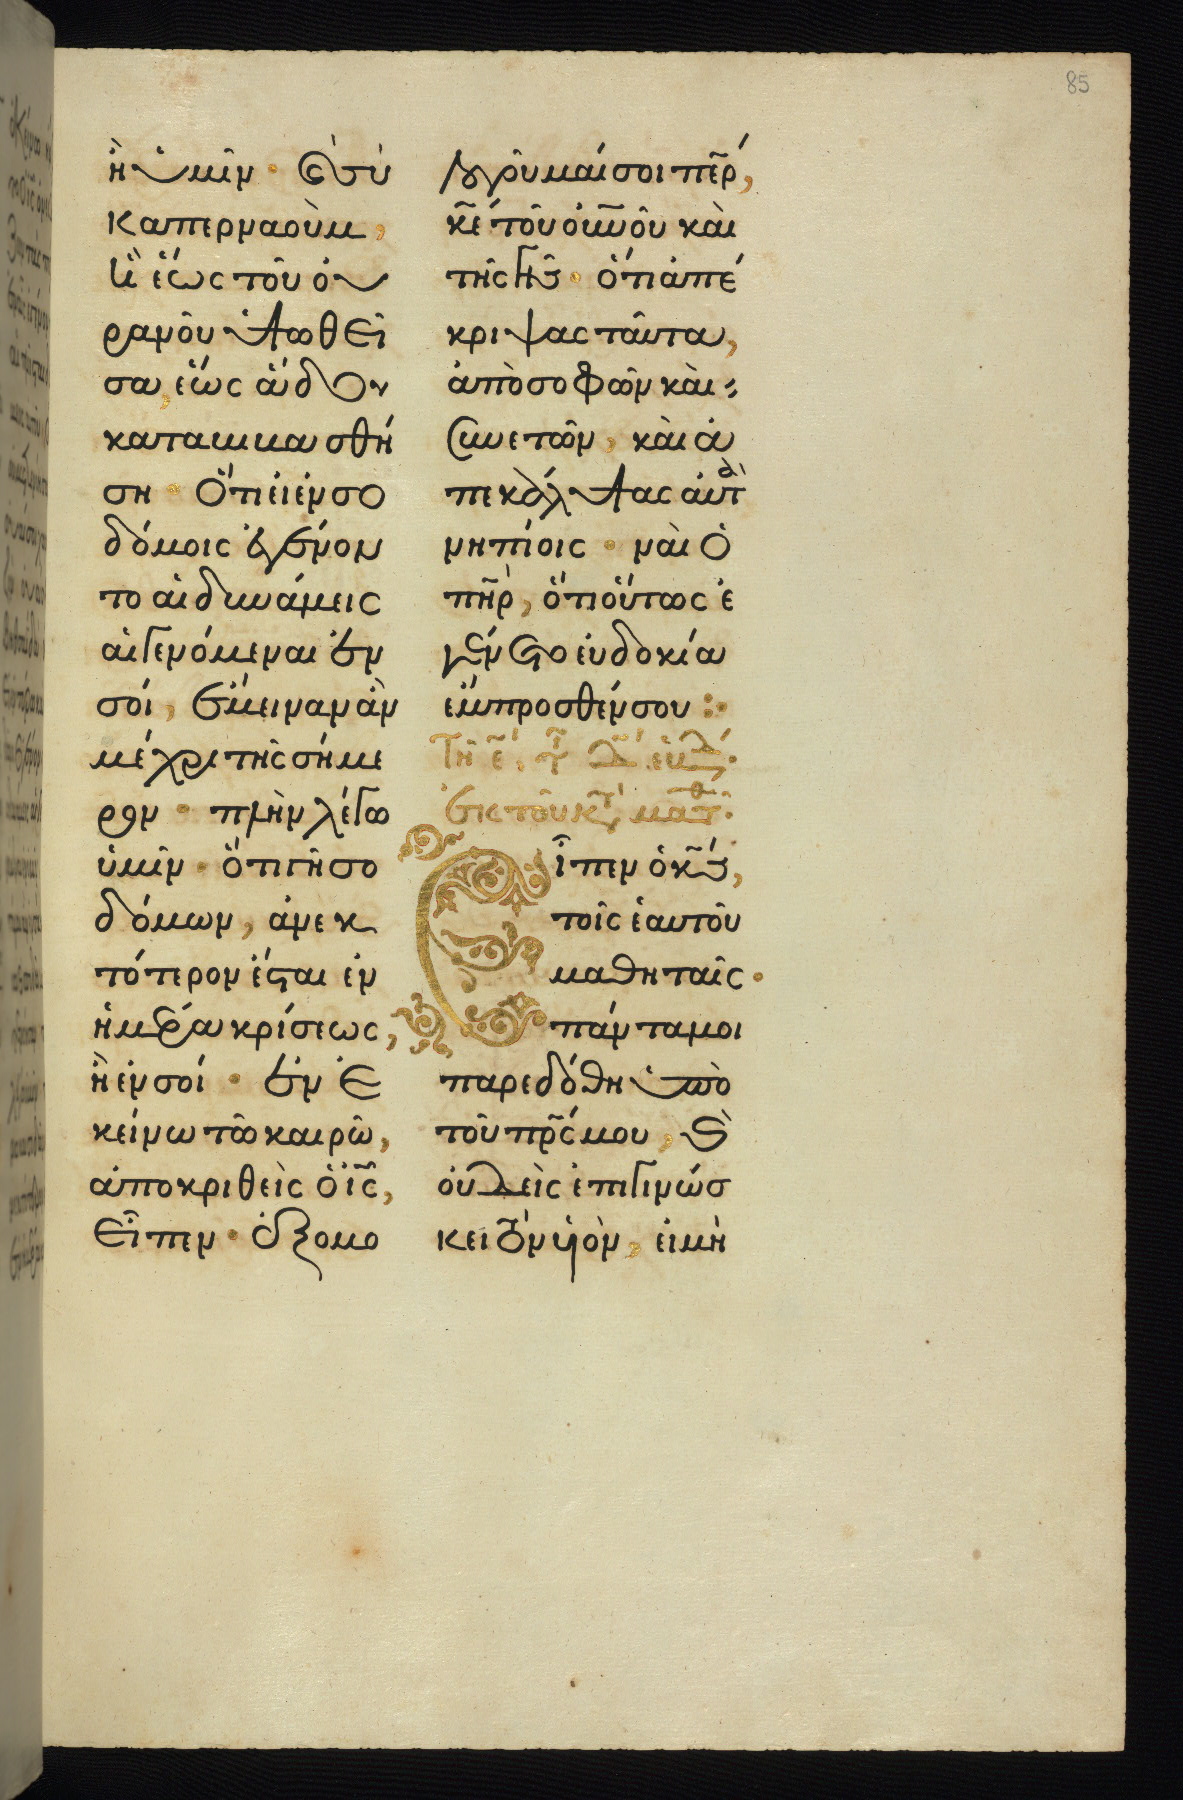 85
ἢ ὑμῖν · Καὶ σὺ
Καπερναοὺμ,
ἡ ἕως τοῦ οὐ
ρανοῦ ὑψωθεῖ
σα, ἕως ἅδου
καταβιβασθή
ση · Ὅτι εἰ ἐν σο
δόμοις ἐγένον
το αἱ δυνάμεις
αἱ γενόμεναι ἐν
σοί, ἔμειναν ἂν
μέχρι τῆς σήμε
ρον · πλὴν λέγω
ὑμῖν · ὅτι γῆ σο
δόμων, ἀνεκ
τότερον ἔσται ἐν
ἡμέρα κρίσεως,
ἢ ἐν σοί · ἐν ἐ
κείνω τῶ καιρῶ,
ἀποκριθεὶς ὁ ις̅,
Εἶπεν · ἐξομο
λογοῦμαί σοι πε̅ρ,
κε̅ τοῦ οὐνοῦ καὶ
τῆς γῆς · ὅτι ἀπέ
κρυψας ταῦτα,
ἀπὸ σοφῶν καὶ
συνετῶν, καὶ ἀ
πεκάλυψας αὐτὰ
νηπίοις · ναὶ ὁ
πη̅ρ, ὅτι οὕτως ἐ
γένετο εὐδοκία
ἔμπροσθέν σου :·
Τῆ ε̅
Ἐκ τοῦ κτ ματθ ·
Εἶπεν ὁ κς̅,
τοῖς ἑαυτοῦ
μαθηταῖς ·
πάντα μοι
παρεδόθη ὑπὸ
τοῦ πρ̅ς μου, καὶ
οὐδεὶς ἐπιγινώσ
κει τὸν υἱὸν, εἰ μὴ